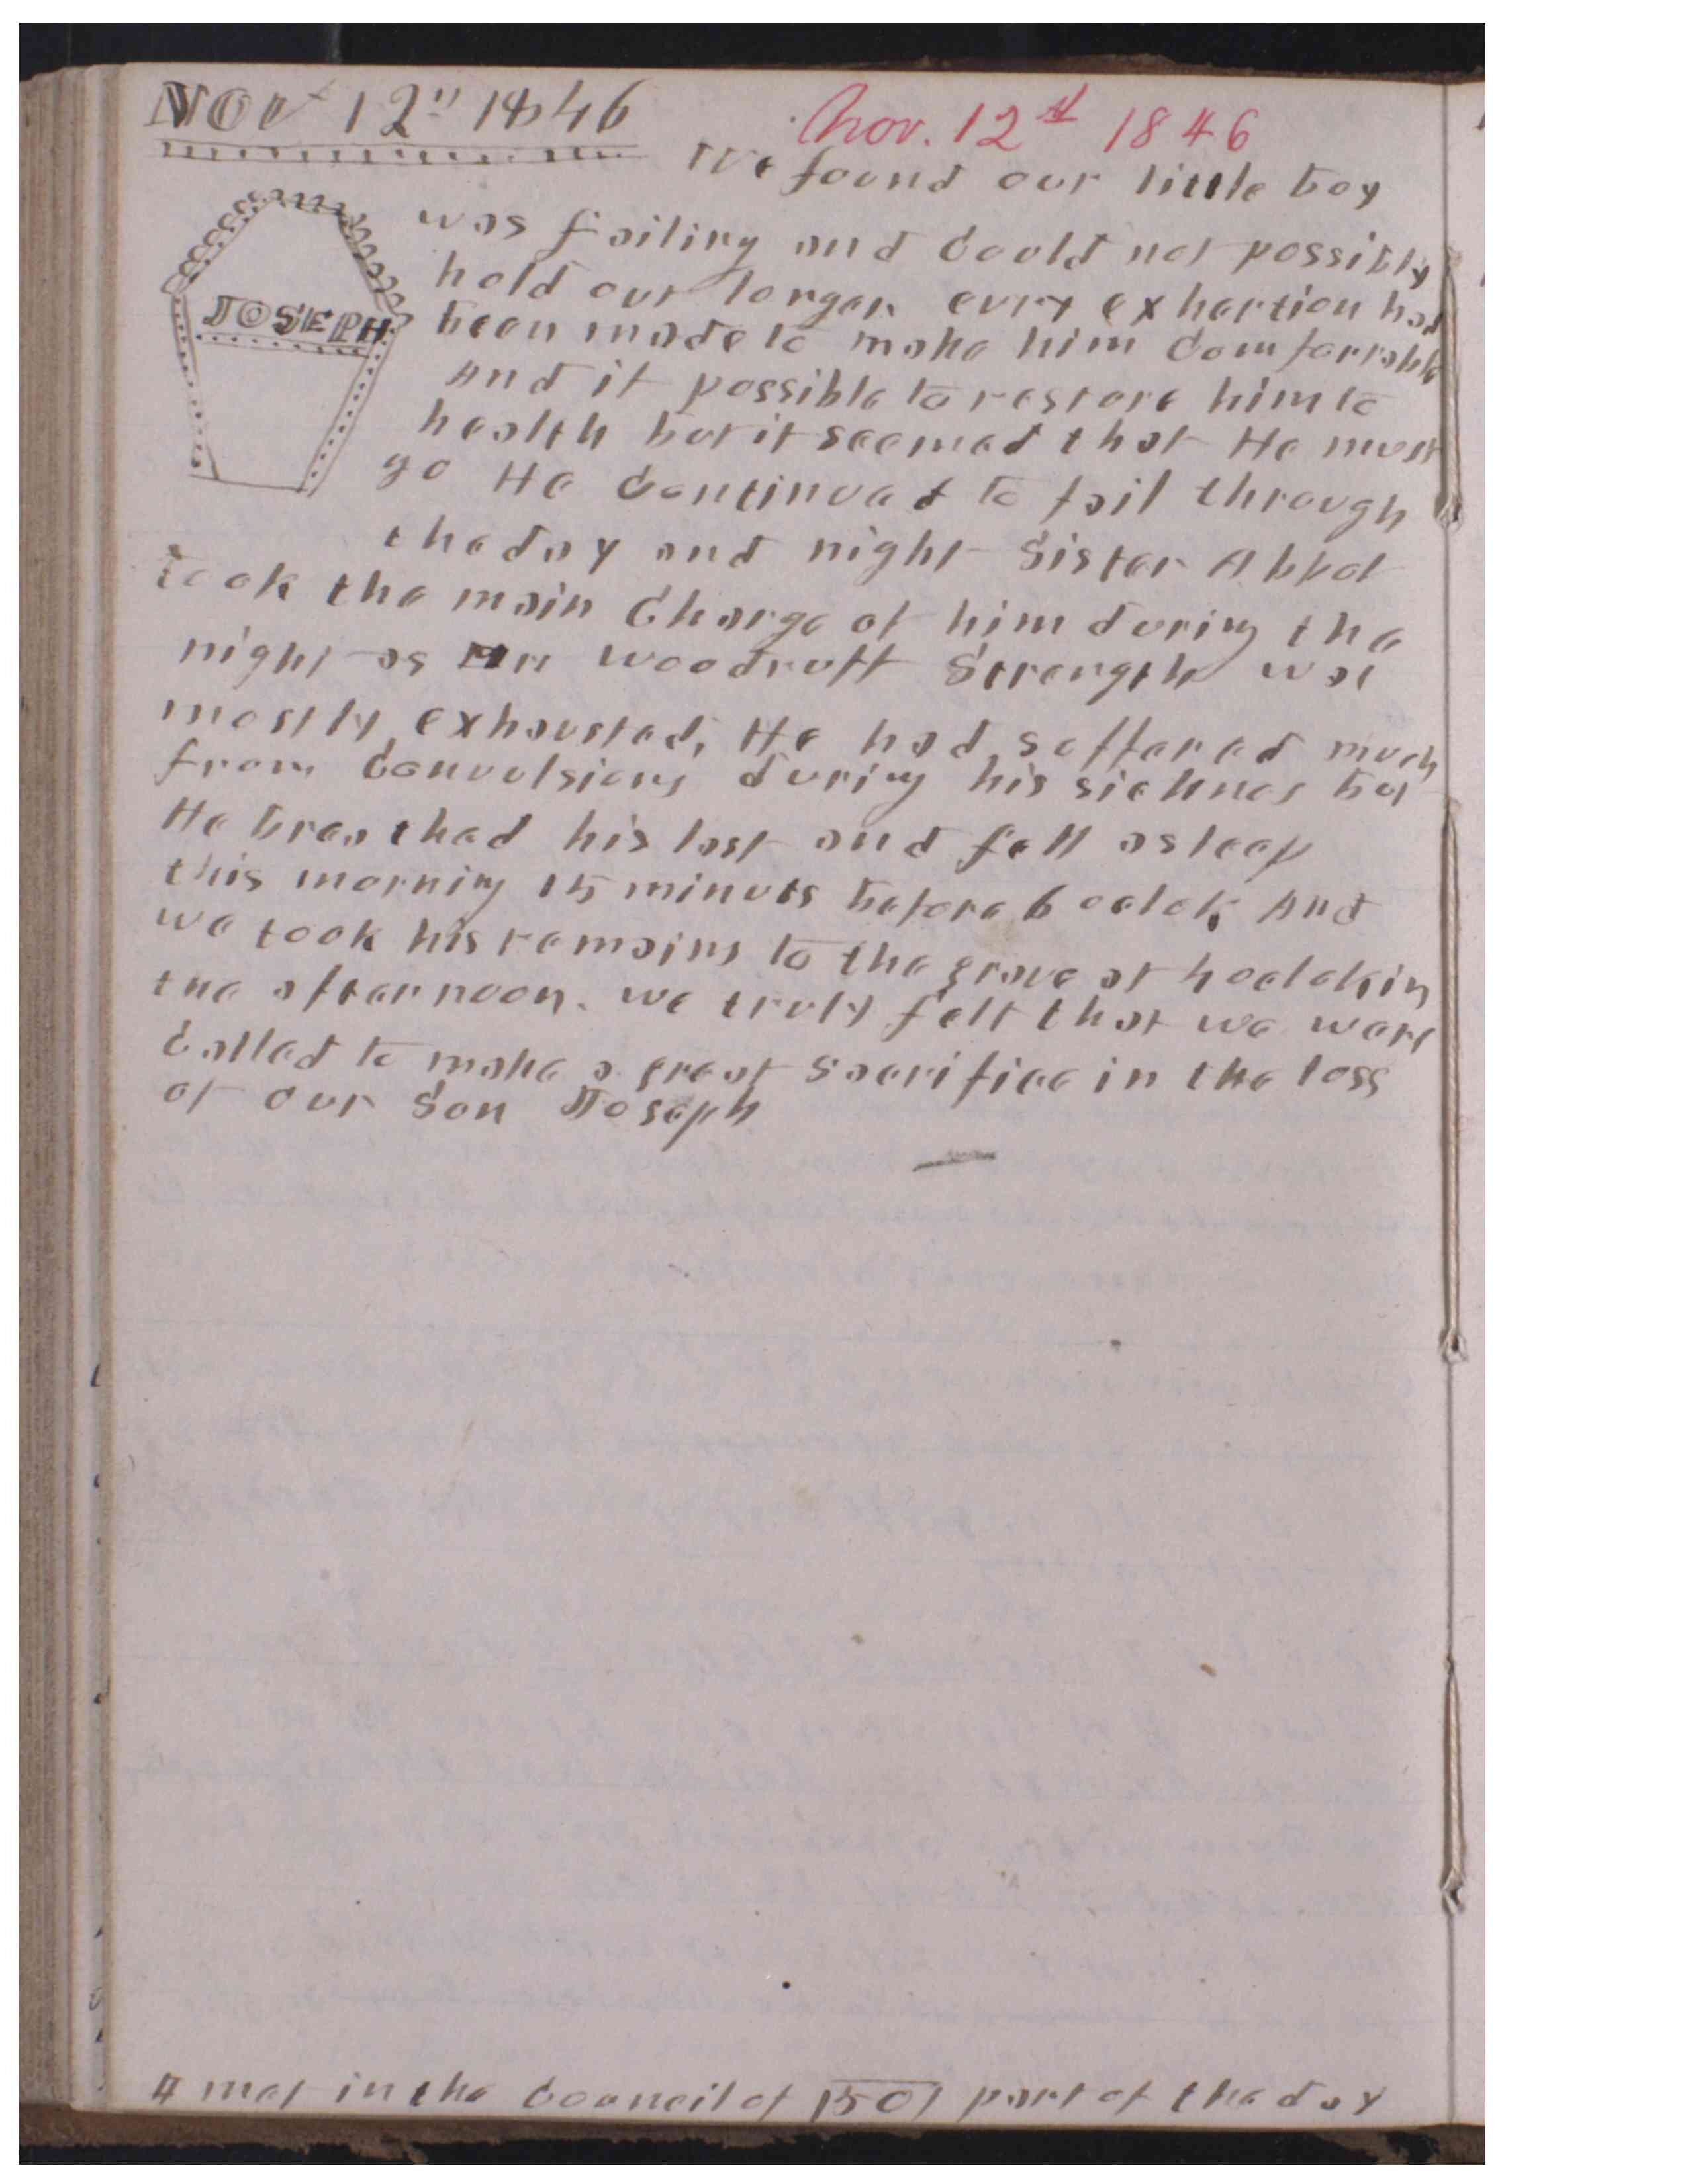 Nov 12th 1846
Nov. 12th 1846
We found our little boy
was failing and Could not possibly
hold out longer. evry exhertion had
JOSEPH
been made to make him Comfortable
And if possible to restore him to
health but it seemed that He must
go He Continued to fail through
the day and night Sister Abbot
took the main Charge of him during the
night as Mrs Woodruff Strength was
mostly exhausted, He had suffered much
from Convulsions during his sickness but
He breathed his last and fell asleep
this morning 15 minuts before 6 oclok And
we took his remains to the grave at 4 oclok in
the afternoon. we truly felt that we were
Called to make a great Sacrifice in the loss
of our Son Joseph
I met in the Council of 150 part of the day